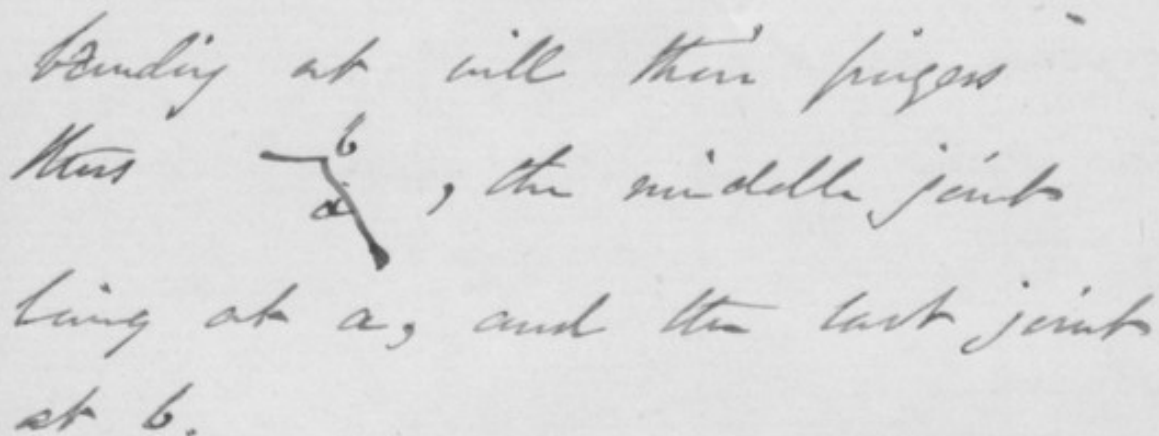 bending at will their fingers
thus b a , the middle joint
being at a, and the last joint
at b.